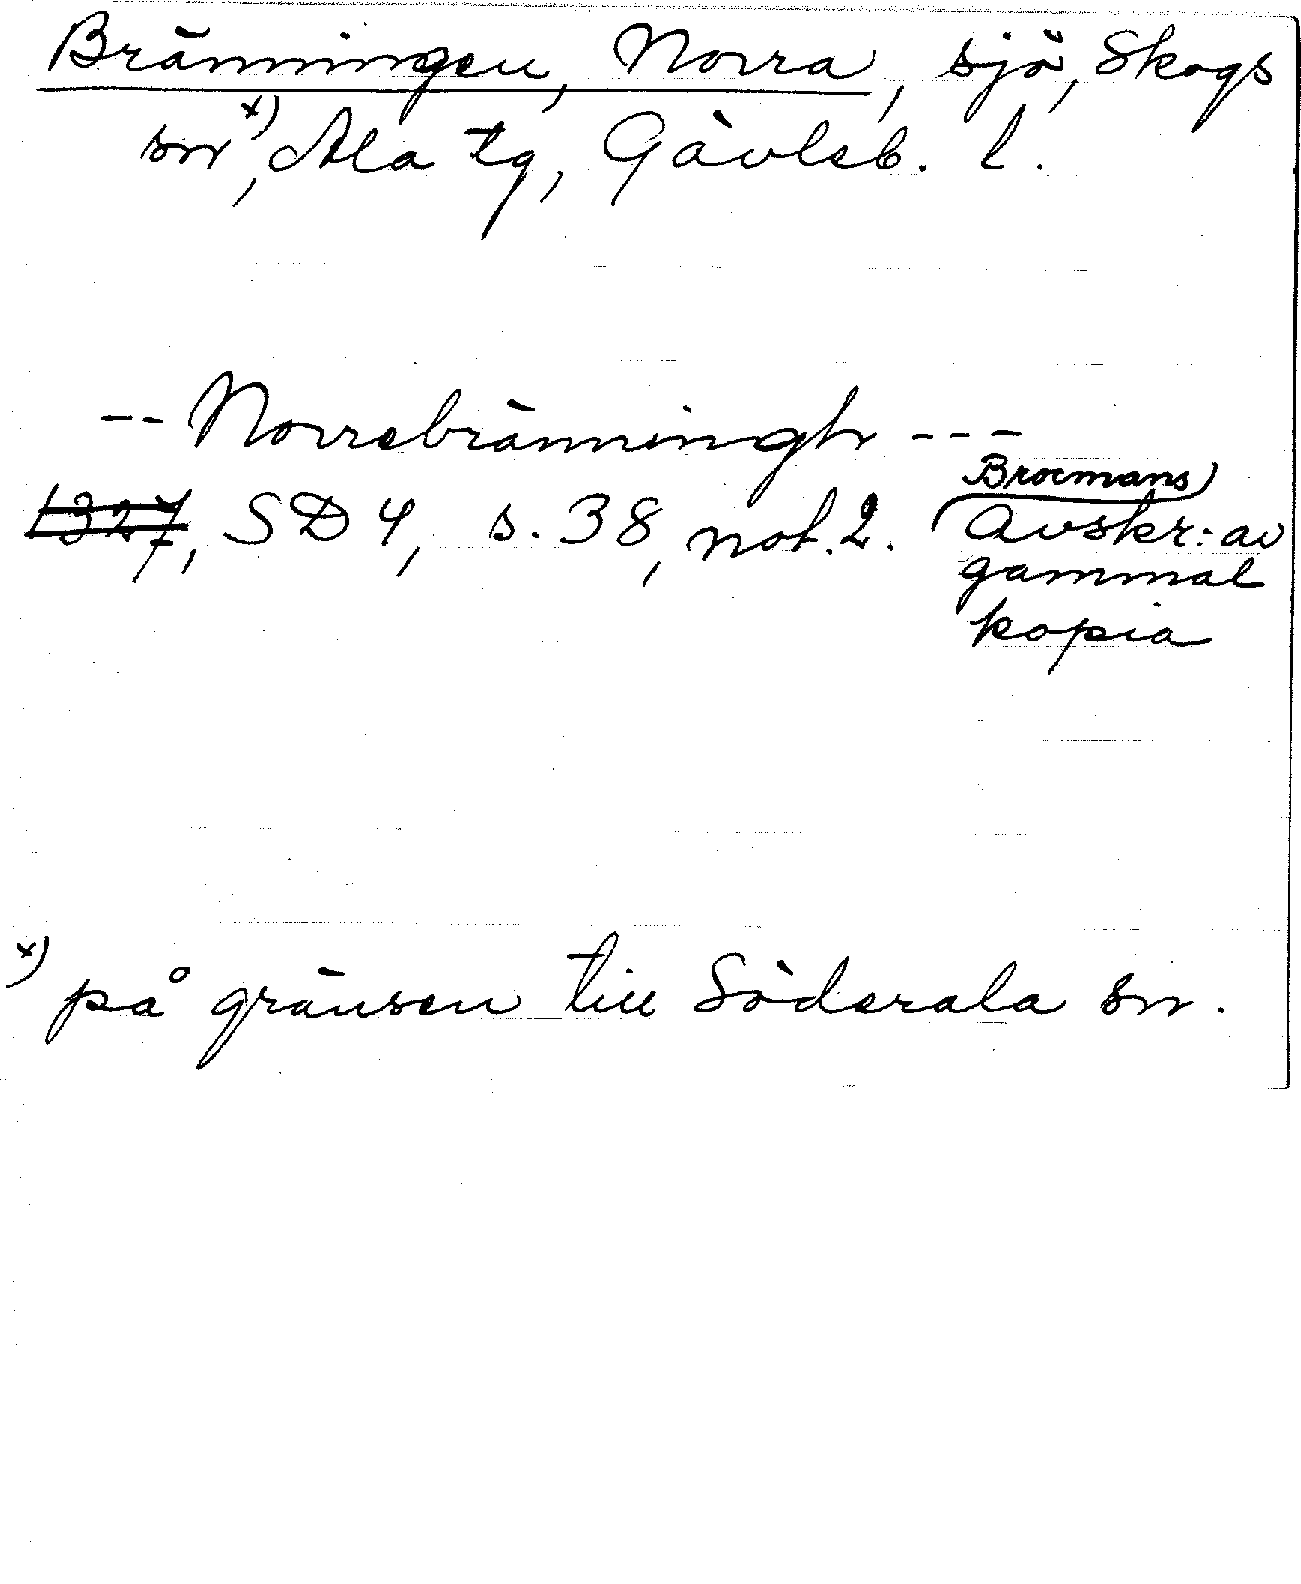 Bränningen, Norra, sjö, Skogs
sn x), Ala tg, Gävleb. l.
-- Norrebränningh ---
1327, SD 4, s. 38, not. 2. (Brocmans
avskr. av
gammal
kopia
x) på gränsen till Söderala sn.